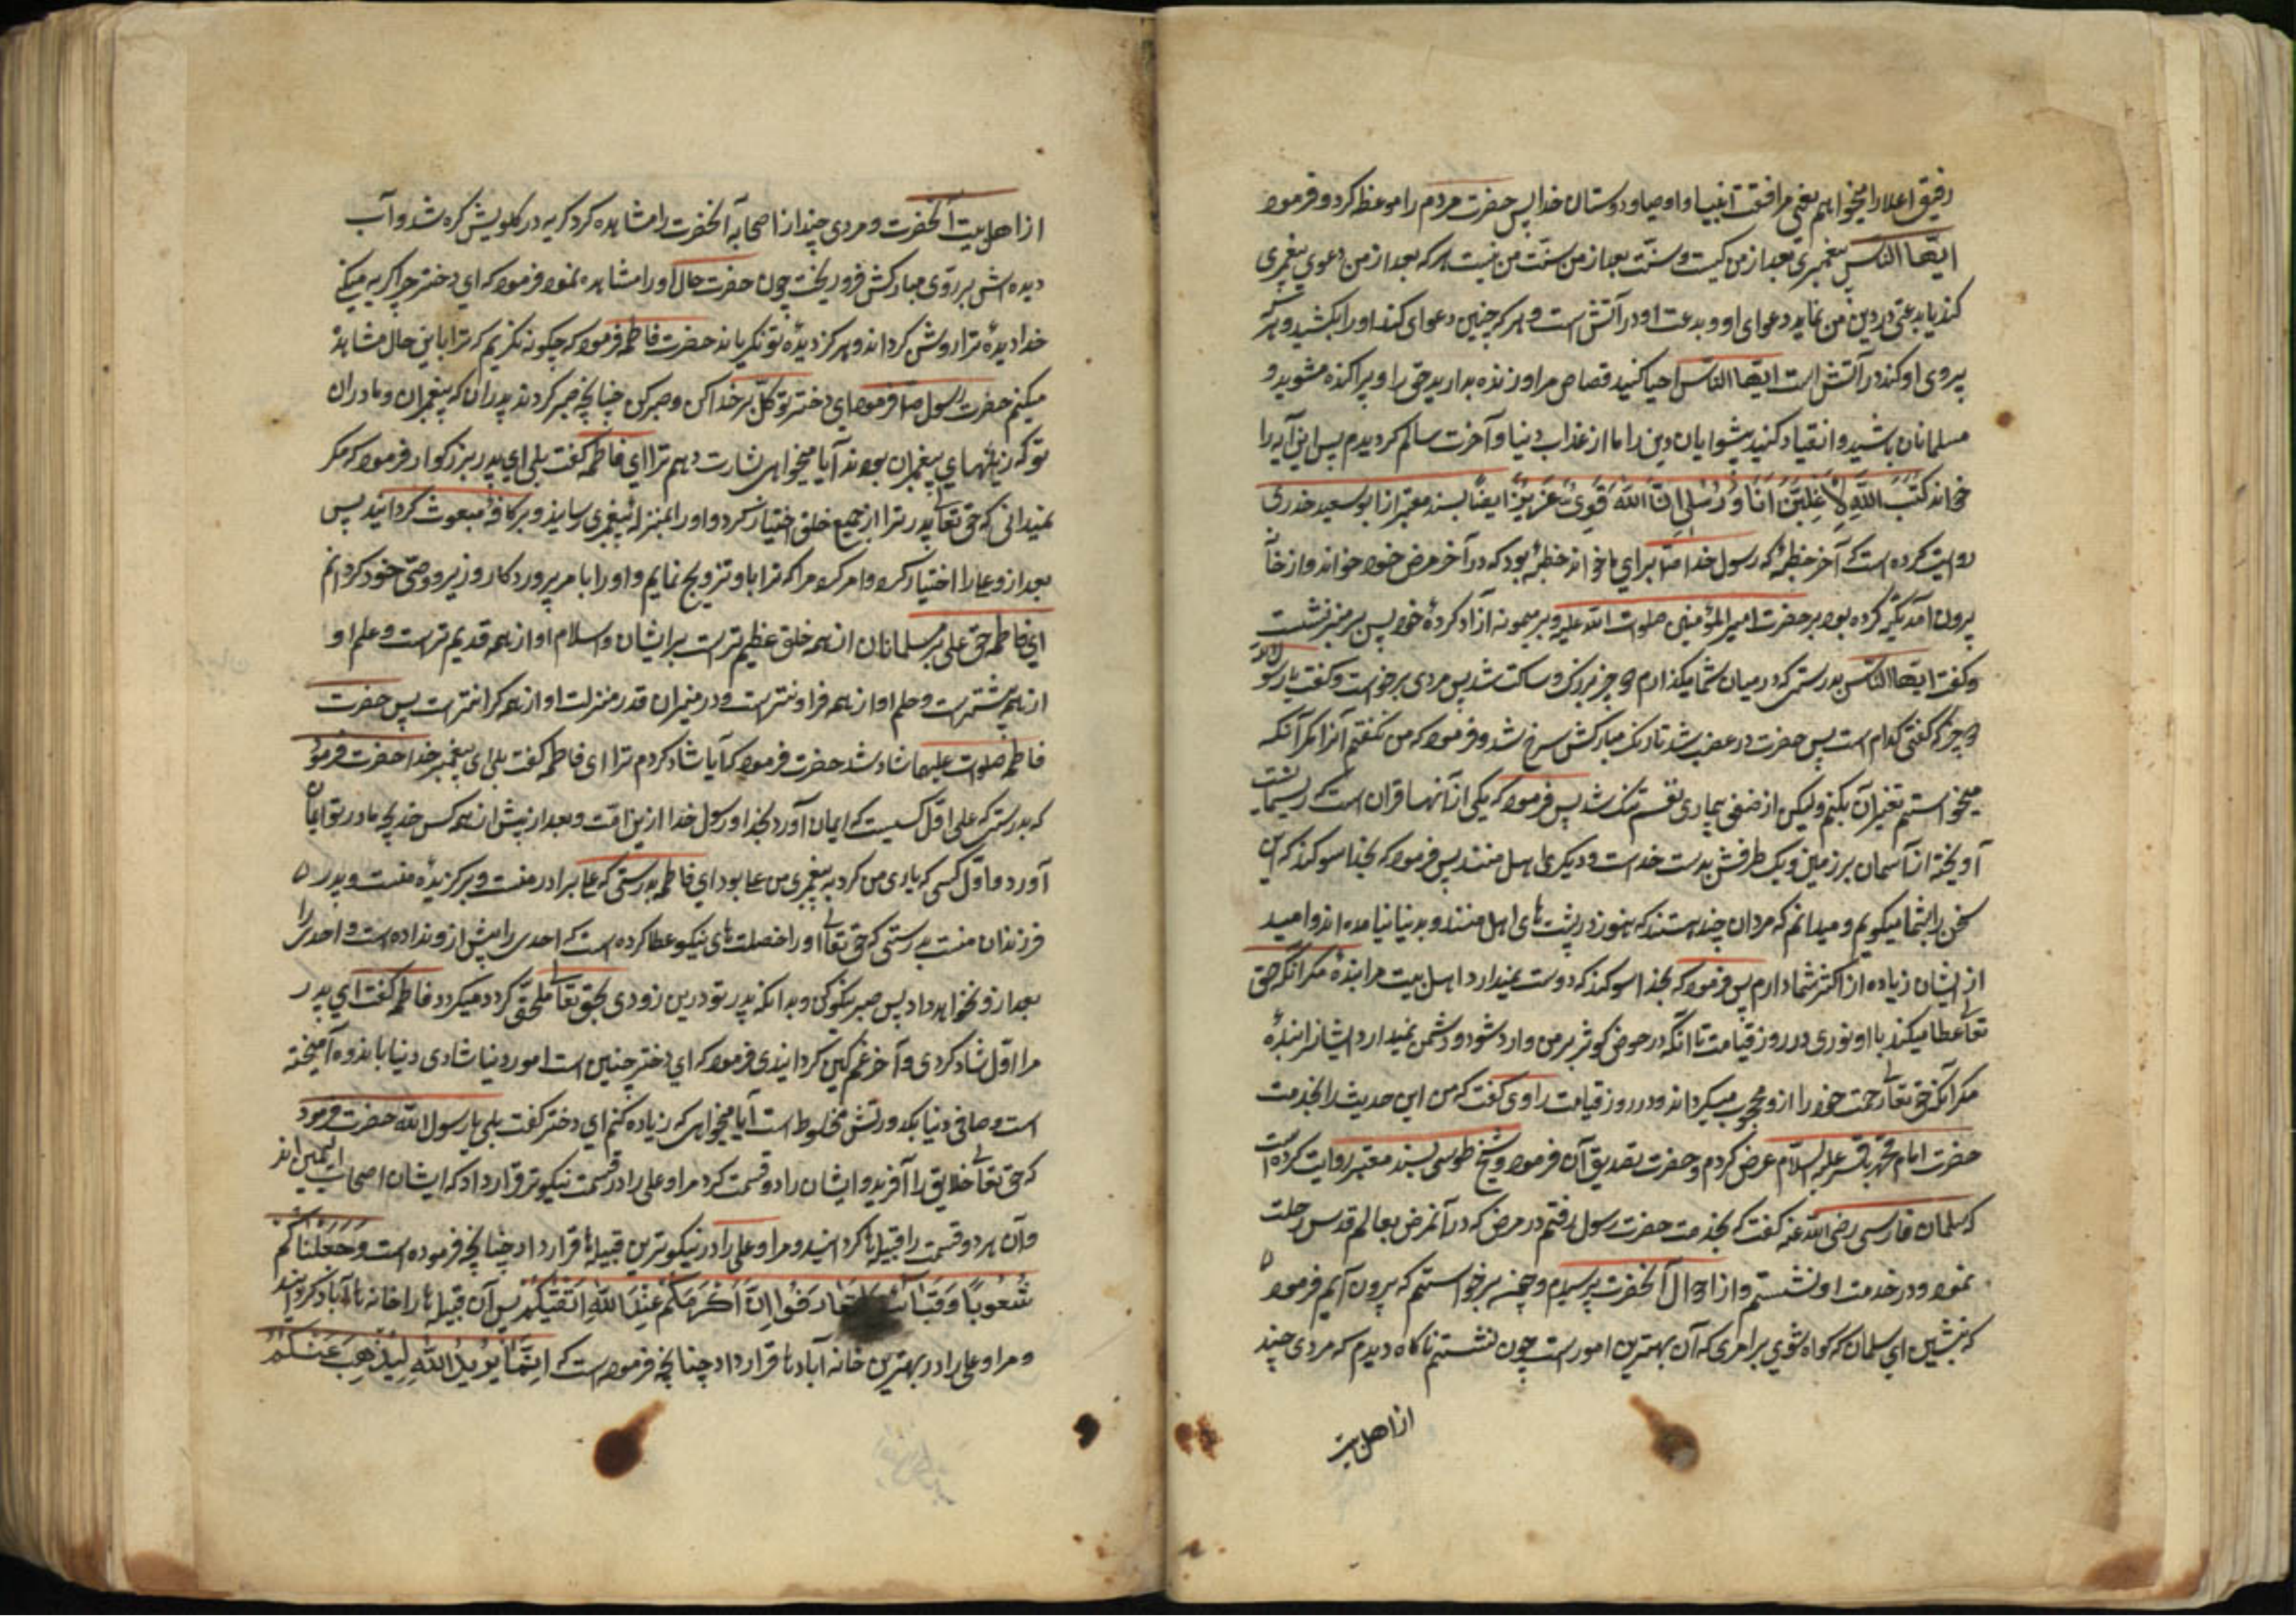 رفیق اعلا را میخواهم یعنی مرافقت انبیا و اوصیا و دوستان خدا پس حضرت مردم را موعظه کرد و فرمود
ایها الناس پیغمبری بعد از من نیست و سنت بعد از سنت من نیست هر که بعد از من دعوی پیغمبری
کند یا بدعتی در دین من نماید دعوای او و بدعت او در آتش است و هر که چنین دعوای کند او را بکشید و هر که
پیروی او کند در آتش است ایها الناس احیا کنید قصاص مر او زنده بدارید حق را و پراکنده مشوید و
مسلمانان باشید و انقیاد کنید پیشوایان دین را تا از عذاب دنیا و آخرت سالم گردید پس این آیه را
خواند کَتَبَ اللّٰهُ لَأَغْلِبَنَّ اَنَا وَرُسُلِی اِنَّ اللّٰهَ قَوِیٌّ عَزِیْزٌ ایضاً بسند معتبر از ابو سعید خدری
روایت کرده است که آخر خطبهٔ که رسول خدا ص برای ما خواند خطبهٔ بود که در آخر مرض خود خواند و از خانه
بیرون آمد تکیه کرده بود بر حضرت امیر المؤمنین صلوات الله علیه و بر میمونه آزاد کردهٔ خود پس بر منبر نشست
و گفت ایها الناس بدرستی که در میان شما میگذارم دو چیز بزرگ و ساکت شد پس مردی برخواست و گفت یا رسول الله
دو چیز که گفتی کدام است پس حضرت در غضب شد تا رنگ مبارکش سرخ شد و فرمود که من نگفتم آنرا مگر آنکه
میخواستم تفسیر آن بکنم ولیکن از ضعف بیماری نفسم تنگ شد پس فرمود که یکی از آنها قرآن است که ریسمانیست
آویخته از آسمان بر زمین و یک طرفش بدست خداست و دیگری اهل منند پس فرمود که بخدا سوگند که این
سخن را بشما میگویم و میدانم که مردان چند هستند که هنوز در پشت های اهل منند و بدنیا نیامده اند و امید
از ایشان زیاده از اکثر شما دارم پس فرمود که بخدا سوگند که دوست نمیدارد اهل بیت مرا بندهٔ مگر آنکه حق
تعالی عطا میکند با او نوری در روز قیامت تا آنکه در حوض کوثر بر من وارد شود و دشمن نمیدارد ایشانرا بندهٔ
مگر آنکه حق تعالی رحمت خود را از و محجوب میگرداند در روز قیامت راوی گفت که من این حدیث را بخدمت
حضرت امام محمد باقر علیه السلام عرض کردم و حضرت تصدیق آن فرمود و شیخ طوسی بسند معتبر روایت کرده است
که سلمان فارسی رضی الله عنه گفت که بخدمت حضرت رسول رفتم در مرضی که در آنمرض بعالم قدس رحلت
نمود و در خدمت او نشستم و از احوال آنحضرت پرسیدم و چون برخواستم که بیرون آیم فرمود
که بنشین ای سلمان که گواه شوی بر امری که آن بهترین امور است چون نشستم ناگاه دیدم که مردی چند
از اهل بیت
از اهل بیت آنحضرت و مردی چند از اصحاب آنحضرت را مشاهده کرد گریه در گلویش گره شد و آب
دیده اش بر روی مبارکش فرو ریخت چون حضرت حال او را مشاهده نمود فرمود که ای دختر چرا گریه میکنی
خدا دیدهٔ ترا روشن گرداند و هرگز دیدهٔ تو نگریاند حضرت فاطمه فرمود که چگونه نگریم که ترا باین حال مشاهده
میکنم حضرت رسول ص فرمود ای دختر توکل بر خدا کن و صبر کن چنانچه صبر کردند پدران تو که پیغمبران و مادران
تو که زنهای پیغمبران بودند آیا میخواهی بشارت دهم ترا ای فاطمه گفت بلی ای پدر بزرگوار فرمود که مگر
نمیدانی که حق تعالی پدر ترا از جمیع خلق اختیار کرد و او را بمنزلهٔ پیغمبری رسانید و بر کافهٔ مبعوث گردانید پس
بعد از و علی را اختیار کرد و امر کرد مرا که ترا باو تزویج نمایم و او را بامر پروردگار وزیر و وصی خود گردانم
ای فاطمه حق علی بر مسلمانان از همه خلق عظیم تر است بر ایشان و اسلام او از همه قدیم تر است و علم او
از همه بیشتر است و حلم او از همه فراونتر است و در میزان قدر منزلت او از همه گرانتر است پس حضرت
فاطمه صلوات علیها شاد شد حضرت فرمود که آیا شاد کردم ترا ای فاطمه گفت بلی ای پیغمبر خدا حضرت فرمود
که بدرستی که علی اول کسیست که ایمان آورد بخدا و رسول خدا ازین امت و بعد از پیش از همه کس خدیجه مادر تو ایمان
آورد و اول کسی که یاری من کرد به پیغمبری من علی بود ای فاطمه بدرستی که علی برادر منست و برگزیدهٔ منست و پدر
فرزندان منست بدرستی که حق تعالی او را خصلت های نیکو عطا کرده است که احدی را پیش از و نداده است و احدی را
بعد از و نخواهد داد پس صبر نیکو کن و بدانکه پدر تو درین زودی بحق تعالی ملحق گردد میگردد فاطمه گفت ای پدر
مرا اول شاد کردی و آخر غمگین گردانیدی فرمود که ای دختر چنین است امور دنیا شادی دنیا باندوه آمیخته
است و صافی دنیا بکدورتش مخلوط است آیا میخواهی که زیاده کنم ای دختر گفت بلی یا رسول الله حضرت فرمود
که حق تعالی خلایق را آفرید و ایشان را دو قسمت کرد مرا و علی را در قسمت نیکوتر قرار داد که ایشان اصحاب الیمین اند
و آن هر دو قسمت را قبیله ها گردانید و مرا و علی را در نیکوترین قبیله ها قرار داد چنانچه فرموده است وَجَعَلْنَاکُمْ
شُعُوبًا وَقَبَائِلَ لِتَعَارَفُوا اِنَّ اَکْرَمَکُمْ عِنْدَ اللّٰهِ اَتْقٰیکُمْ پس آن قبیله ها را خانه آبادها گردانید
و مرا و علی را در بهترین خانه آبادها قرار داد چنانچه فرموده است که اِنَّمَا یُرِیدُ اللّٰهُ لِیُذْهِبَ عَنْکُمُ